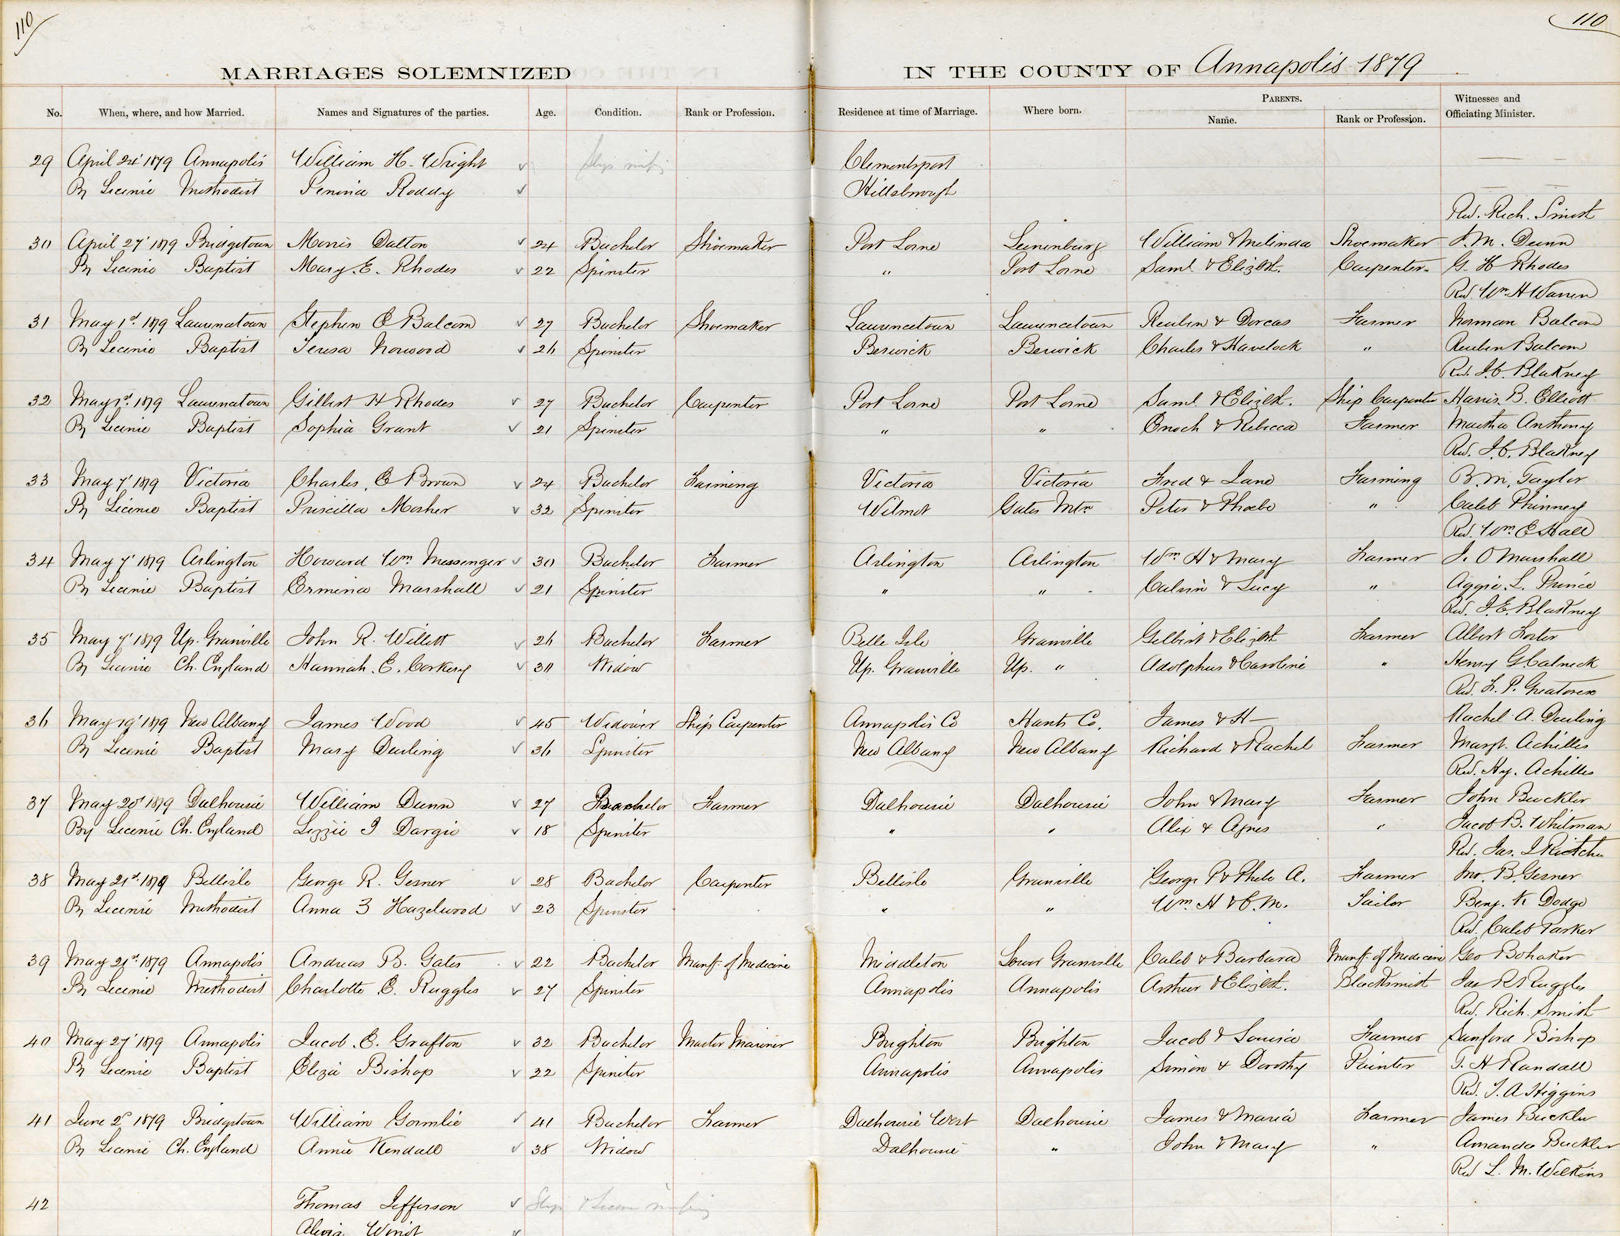 110
110
MARRIAGES SOLEMNIZED IN THE COUNTY OF Annapolis 1879
No. When, where, and how Married. Names and Signatures of the parties. Age. Condition. Rank or Profession. Residence at time of Marriage. Where born. PARENTS. Name. Rank or Profession. Witnesses and Officiating Minister.
29 April 24 1879 Annapolis William H. Wright Clementsport
By Licenie Methodist Penina Roddy Hillsbrough
Rev. Rich. Smith
30 April 27 1879 Bridgetown Morris Dalton 24 Bachelor Shoemaker Port Lorne Lunenburg William & Melinda Shoemaker J. M. Dunn
By Licenie Baptist Mary E. Rhodes 22 Spinster " Port Lorne Saml & Elizth. Carpenter G. H Rhodes
Rev. Wm H Warren
31 May 1st 1879 Lawrencetown Stephen E Balcom 27 Bachelor Shoemaker Lawrencetown Lawrencetown Reuben & Dorcas Farmer Norman Balcom
By Licenie Baptist Teresa Norwood 26 Spinster Berwick Berwick Charles & Havelock " Reuben Balcom
Rev. J. C. Blakney
32 May 1st 1879 Lawrencetown Gilbert H Rhodes 27 Bachelor Carpenter Port Lorne Port Lorne Saml & Elizth. Ship Carpenter Harris B. Elliott
By Licenie Baptist Sophia Grant 21 Spinster " " Enoch & Rebecca Farmer Martha Anthony
Rev. J. C. Blakney
33 May 7 1879 Victoria Charles E Brown 24 Bachelor Farming Victoria Victoria Fred & Jane Farming B. M. Taylor
By Licenie Baptist Priscilla Mosher 32 Spinster Wilmot Gates Mtn Peter & Phoebe " Caleb Phinney
Rev. Wm E Hall
34 May 7 1879 Arlington Howard Wm Messenger 30 Bachelor Farmer Arlington Arlington Wm H & Mary Farmer J. O Marshall
By Licenie Baptist Ermina Marshall 21 Spinster " " Calvin & Lucy " Aggie L. Prince
Rev. J. E. Blakney
35 May 7 1879 Up. Granville John R. Willett 26 Bachelor Farmer Belle Isle Granville Gilbert & Elizth Farmer Albert Foster
By Licenie Ch. England Hannah. E. Corkery 30 Widow Up. Granville Up. " Adolphus & Caroline " Henry G Calneck
Rev. F. P. Greatorex
36 May 19 1879 New Albany James Wood 45 Widower Ship Carpenter Annapolis Co Hants Co. James & H— Rachel A. Durling
By Licenie Baptist Mary Durling 36 Spinster New Albany New Albany Richard & Rachel Farmer Margt. Achilles
Rev. Hy. Achilles
37 May 20 1879 Dalhousie William Dunn 27 Bachelor Farmer Dalhousie Dalhousie John & Mary Farmer John Buckler
By Licenie Ch. England Lizzie J Dargie 18 Spinster " " Alex & Agnes " Jacob B. Whitman
Rev. Jas. J Ritchie
38 May 21st 1879 Bellisle George R. Gesner 28 Bachelor Carpenter Bellisle Granville George P & Phebe A. Farmer Jno. B. Gesner
By Licenie Methodist Anna 3 Hazelwood 23 Spinster " " Wm. H & C. M. Tailor Benj. K Dodge
Rev. Caleb Parker
39 May 21st 1879 Annapolis Andreas B. Gates 22 Bachelor Manf. of Medicine Middleton Lower Granville Caleb & Barbara Manf. of Medicine Geo Bohaker
By Licenie Methodist Charlotte E. Ruggles 27 Spinster Annapolis Annapolis Arthur & Elizth. Blacksmith Jas R Ruggles
Rev. Rich. Smith
40 May 27 1879 Annapolis Jacob. E. Grafton 32 Bachelor Master Mariner Brighton Brighton Jacob & Louisa Farmer Sanford Bishop
By Licenie Baptist Eliza Bishop 22 Spinster Annapolis Annapolis Simon & Dorothy Painter T. H Randall
Rev. T. A Higgins
41 June 2d 1879 Bridgetown William Gormlie 41 Bachelor Farmer Dalhousie West Dalhousie James & Maria Farmer James Buckler
By Licenie Ch. England Annie Kendall 38 Widow Dalhousie " John & Mary " Amanda Buckler
Rev L. M. Wilkins
42 Thomas Jefferson